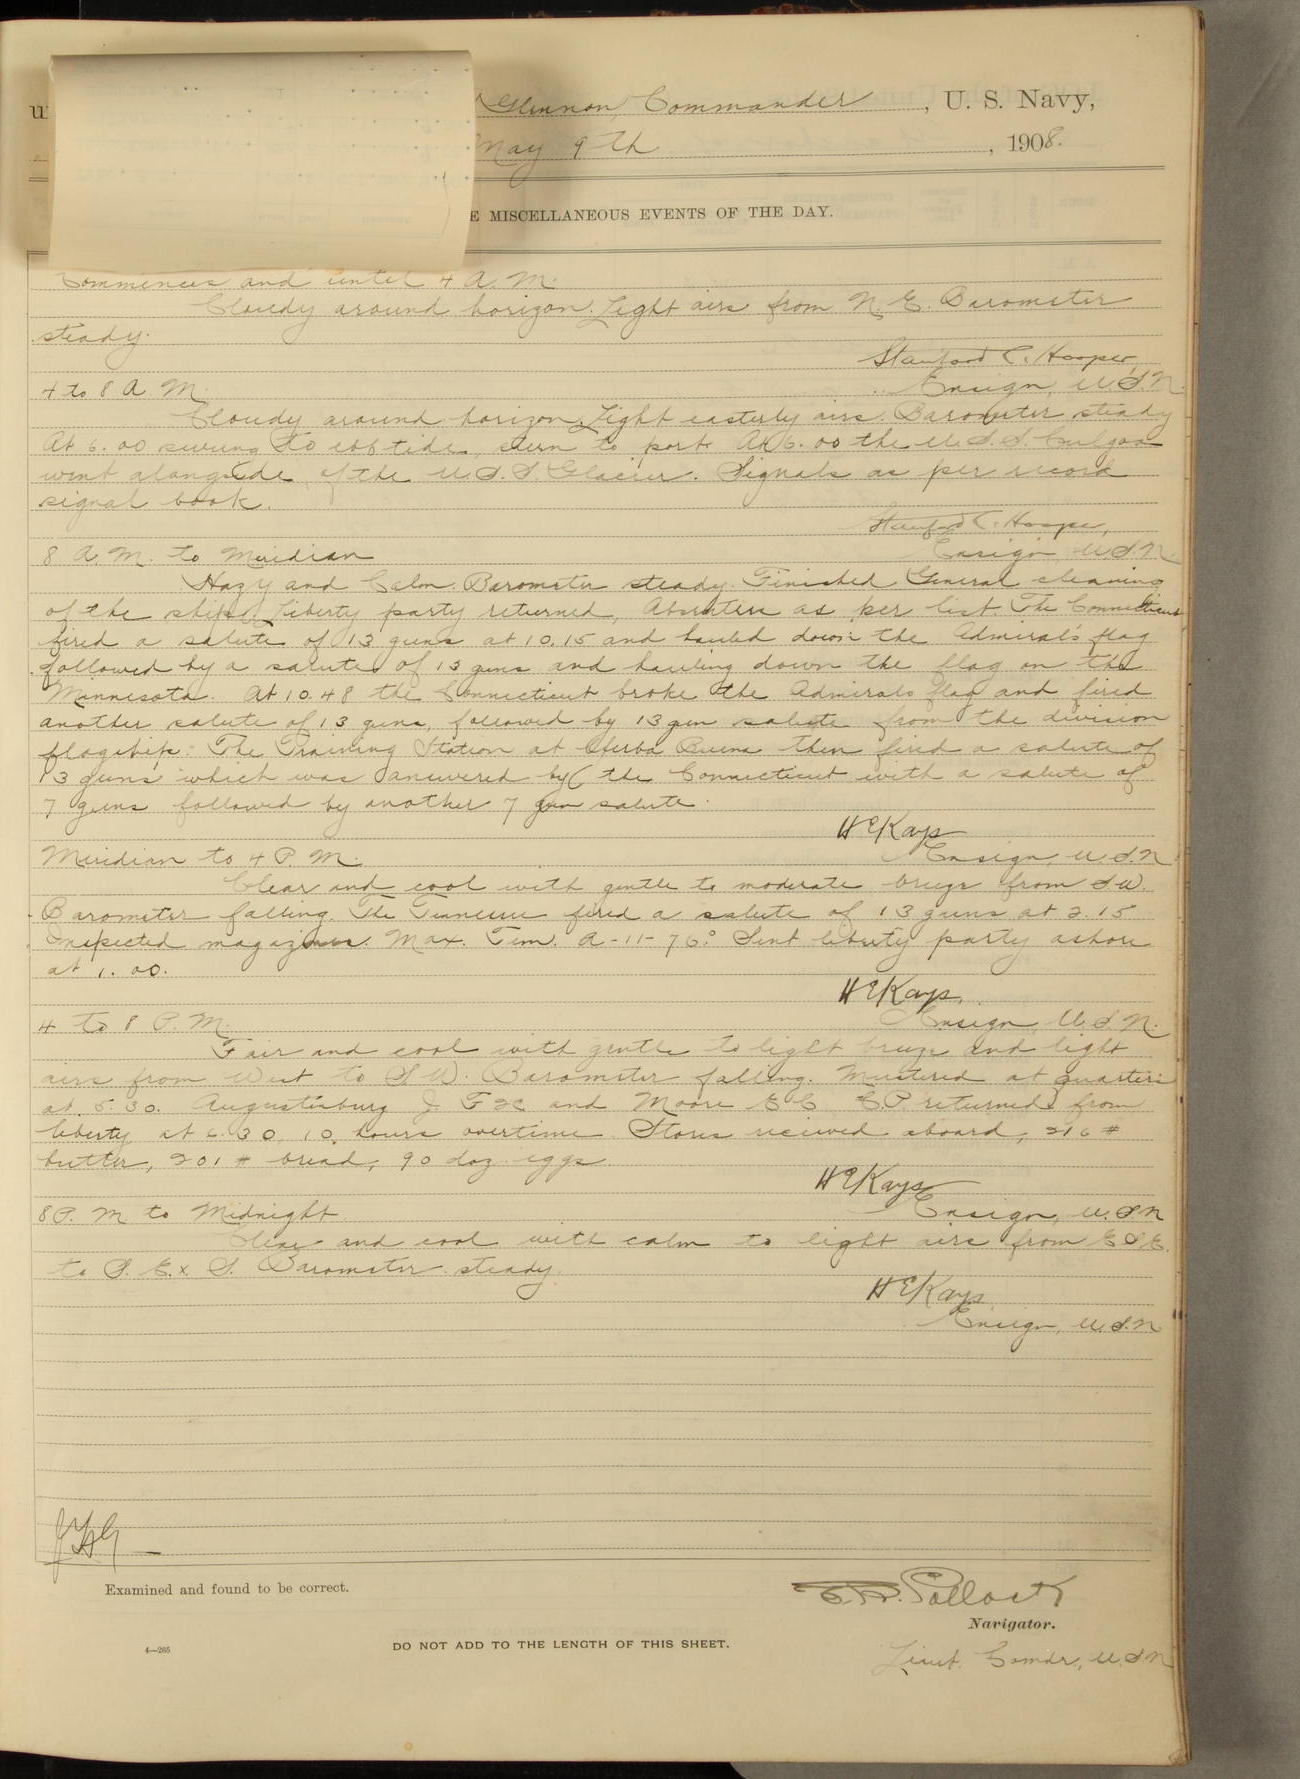 Glennon, Commander, U. S. Navy,
May 9th, 1908.
MISCELLANEOUS EVENTS OF THE DAY.
Commences and until 4 A. M.
Cloudy around horizon. Light airs from N. E. Barometer
steady.
Stanford C. Hooper,
4 to 8 A. M. Ensign, U.S.N.
Cloudy around horizon. Light easterly airs. Barometer steady
At 6.00 swung to ebb tide, stern to port. At 6.00 the U.S.S. Culgoa
went alongside of the U.S.S. Glacier. Signals as per record
signal book.
Stanford C. Hooper,
8 A. M. to Meridian Ensign U.S.N.
Hazy and Calm. Barometer steady. Finished General cleaning
of the ship. Liberty party returned, Absentees as per list. The Connecticut
fired a salute of 13 guns at 10.15 and hauled down the Admiral's flag
followed by a salute of 13 guns and hauling down the flag on the
Minnesota. At 10.48 the Connecticut broke the Admirals flag and fired
another salute of 13 guns, followed by 13 gun salute from the division
flagship. The Training Station at Yerba Buena then fired a salute of
13 guns which was answered by the Connecticut with a salute of
7 guns followed by another 7 gun salute.
H E Kays
Meridian to 4 P. M. Ensign, U.S.N
Clear and cool with gentle to moderate breeze from S.W.
Barometer falling. The Tennessee fired a salute of 13 guns at 2.15
Inspected magazines. Max. Tem. A-11- 76.° Sent liberty party ashore
at 1.00.
H E Kays.
4 to 8 P. M. Ensign, U.S.N.
Fair and cool with gentle to light breeze and light
airs from West to S W. Barometer falling. Mustered at quarters
at 5.30. Augustisburg J. F2C and Moore E C C.P. returned from
liberty at 6.30, 10, hours overtime. Stores received aboard, 216 #
butter, 201 # bread, 90 doz eggs
H E Kays
8 P. M to Midnight. Ensign, U.S.N
Clear and cool with calm to light airs from E S E.
to S. E. x S. Barometer steady.
H E Kays
Ensign, U.S.N
JHG
Examined and found to be correct.
Pollock
Navigator.
4—265
DO NOT ADD TO THE LENGTH OF THIS SHEET.
Lieut. Comdr, U.S.N